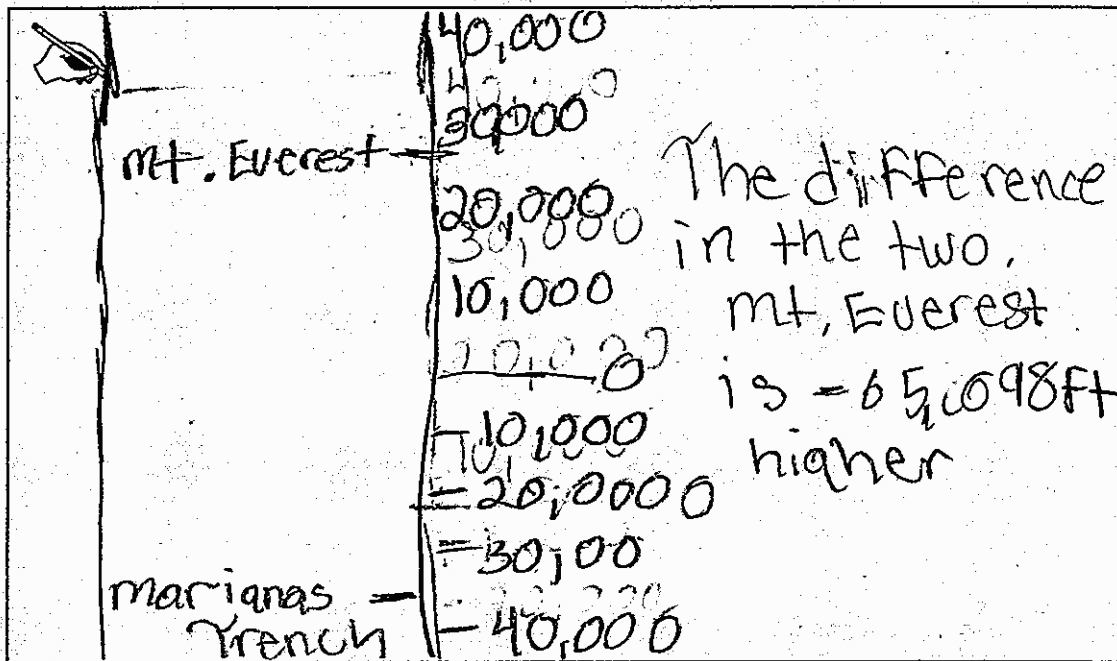 40,000
30,000
mt. Everest
20,000
30,000
10,000
0
-10,000
-20,0000
-30,00
marianas
Trench
-40,000
The difference
in the two.
mt, Everest
is -65,098ft
higher